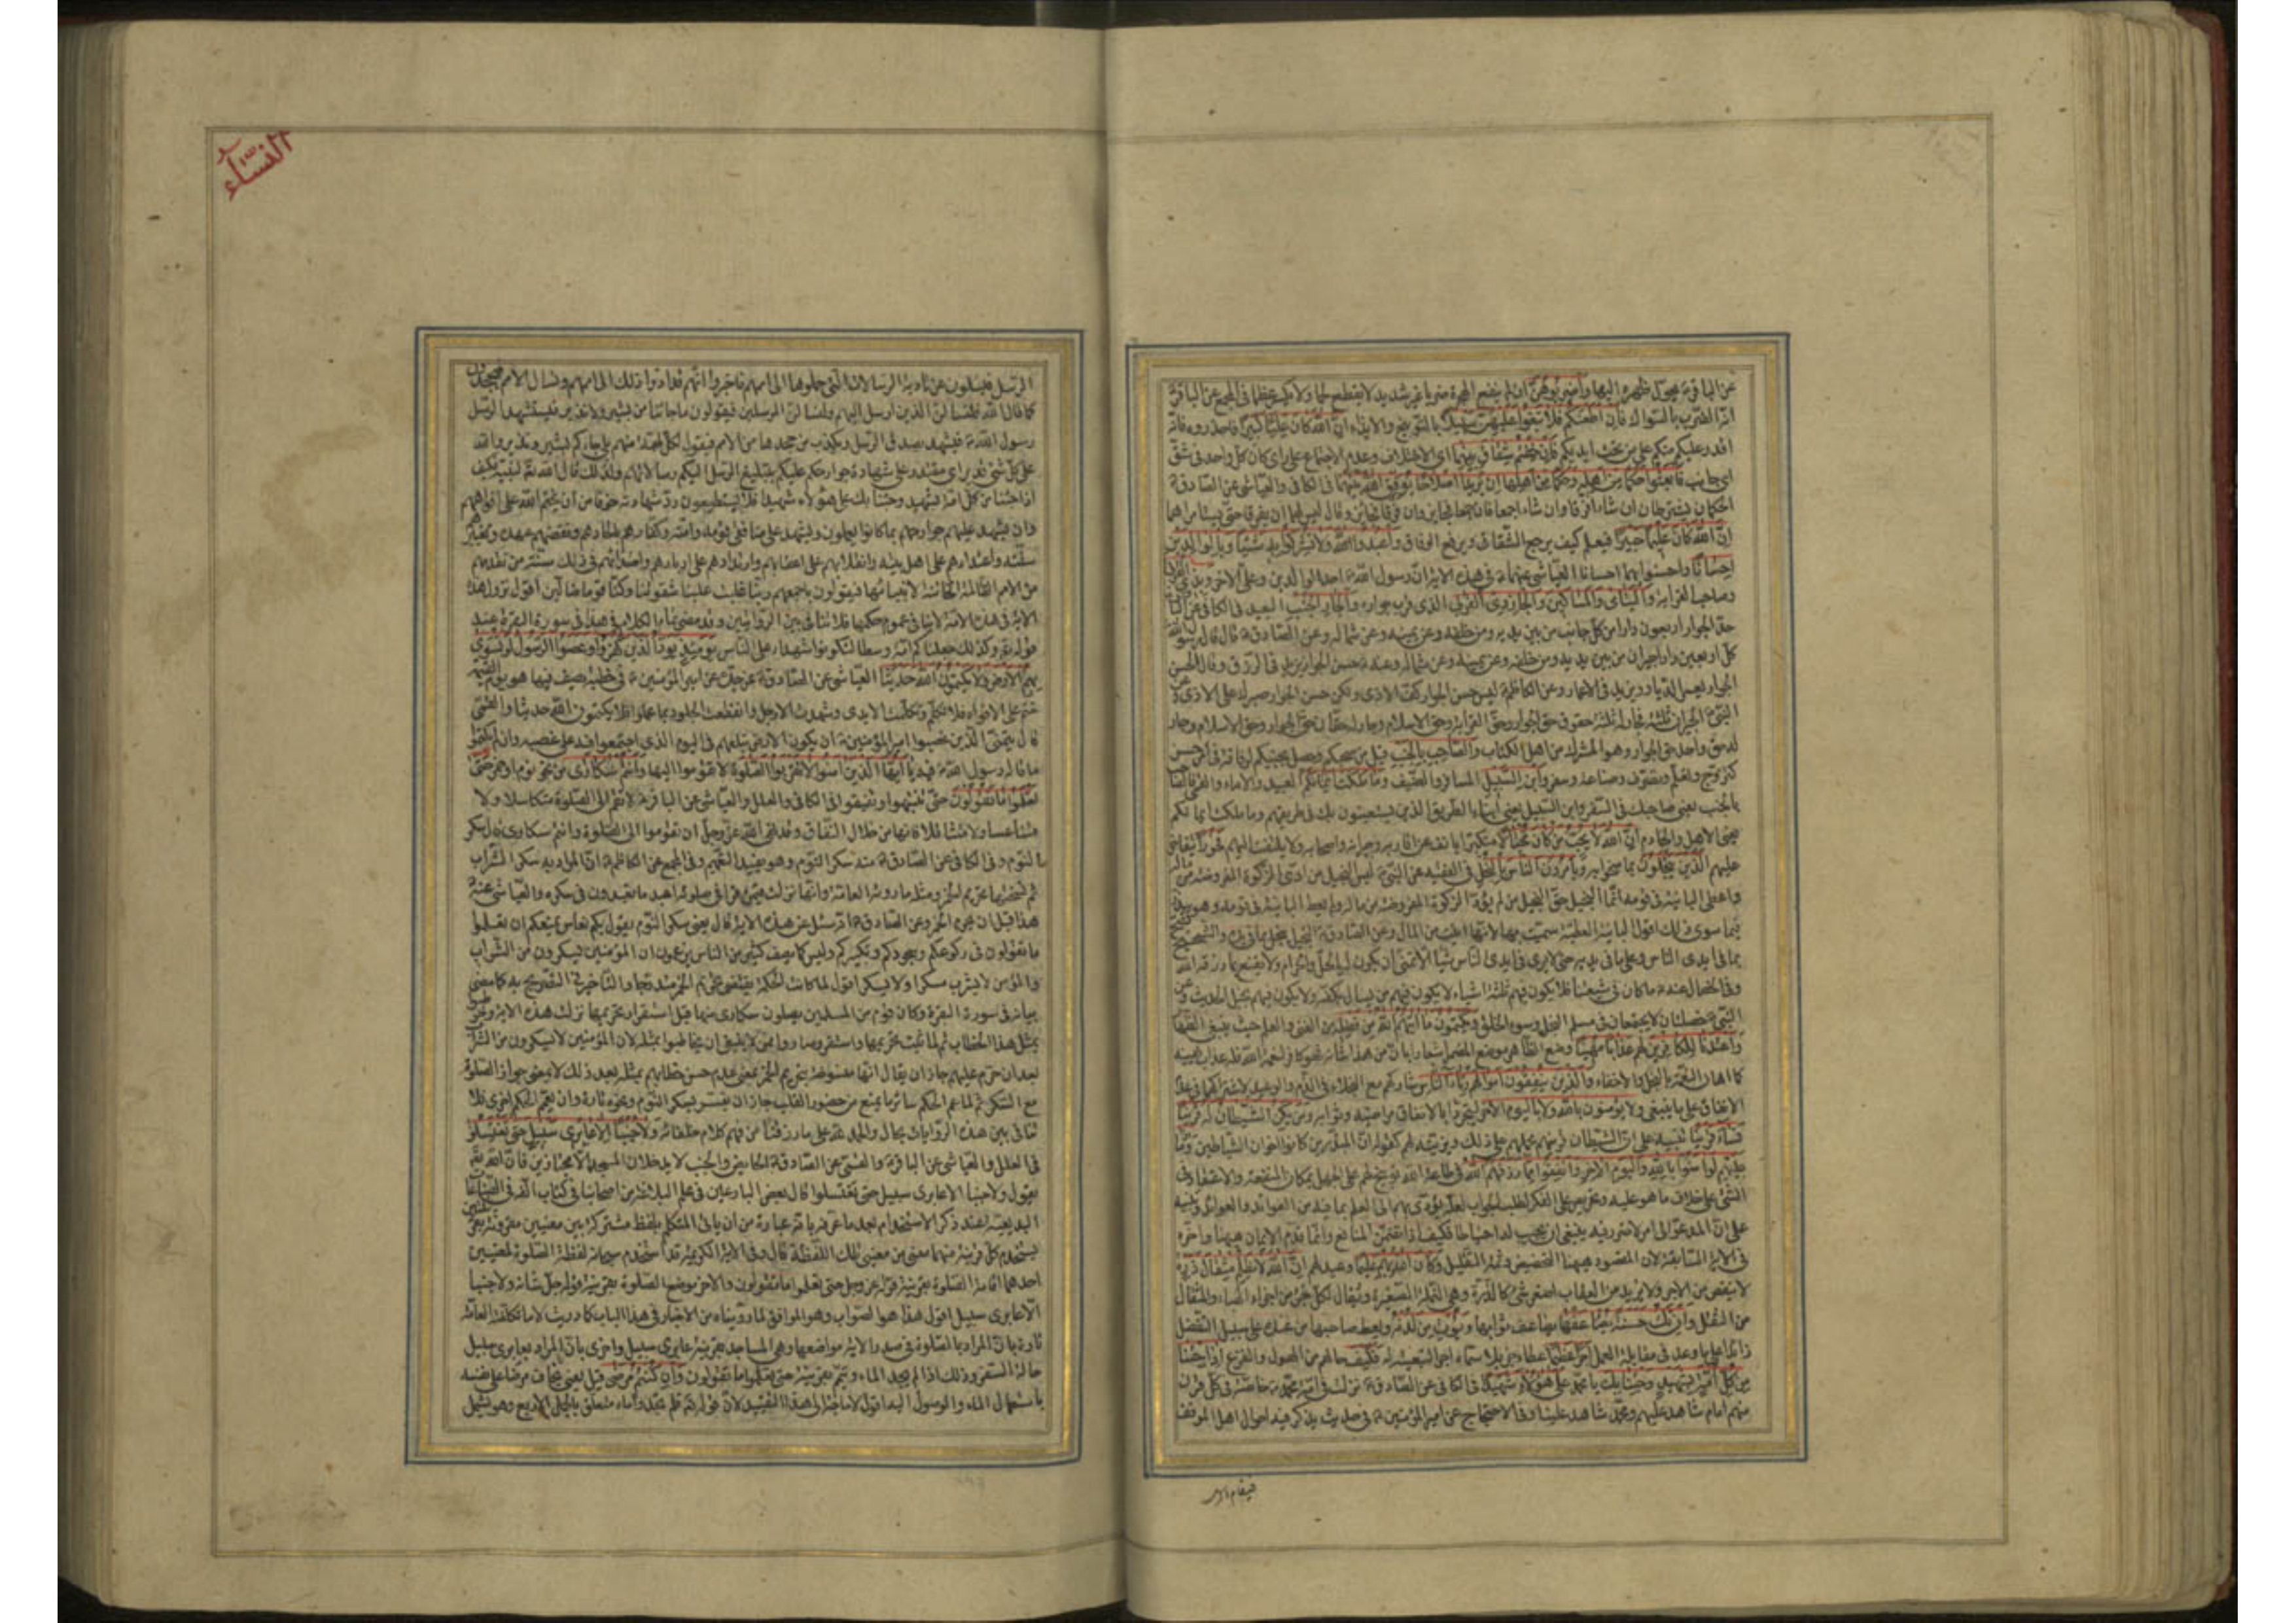 عن الباقر ع يحول ظهره اليها واضربوهن ان لم ينفع الهجرة ضربا غير شديد لا يقطع لحما ولا يكسر عظما في المجمع عن الباقر ع
انه الضرب بالسواك فان اطعنكم فلا تبغوا عليهن سبيلا بالتوبيخ والايذاء ان الله كان عليا كبيرا فاحذروه فانه
اقدر عليكم منكم على من تحت ايديكم وان خفتم شقاق بينهما اى الاختلاف وعدم الاجتماع على راى كان كل واحد في شق
اى جانب فابعثوا حكما من اهله وحكما من اهلها ان يريدا اصلاحا يوفق الله بينهما في الكافى والعياشى عن الصادق ع
الحكمان يشترطان ان شاءا فرقا وان شاءا جمعا فان جمعا فجايز وان فرقا فجايز وقال ليس لهما ان يفرقا حتى يستامراهما
ان الله كان عليما خبيرا فيعلم كيف يرجع الشقاق ويرفع الوفاق واعبدوا الله ولا تشركوا به شيئا وبالوالدين
احسانا واحسنوا بهما احسانا العياشى عنهما ع في هذه الاية ان رسول الله ص احد الوالدين وعلى الاخر وبذى القربى
وصاحب القرابة واليتامى والمساكين والجار ذى القربى الذى قرب جواره والجار الجنب البعيد في الكافى عن الباقر
حد الجوار اربعون دارا من كل جانب من بين يديه ومن خلفه وعن يمينه وعن شماله وعن الصادق ع قال قال رسول الله
كل اربعين دارا جيران من بين يديه ومن خلفه وعن يمينه وعن شماله وعنه ع حسن الجوار يزيد في الرزق وقال حسن
الجوار يعمر الديار ويزيد في الاعمار وعن الكاظم ع ليس حسن الجوار كف الاذى ولكن حسن الجوار صبرك على الاذى وعن
النبى ص الجيران ثلثة فجار له ثلثة حقوق حق الجوار وحق القرابة وحق الاسلام وجار له حقان حق الجوار وحق الاسلام وجار
له حق واحد حق الجوار وهو المشرك من اهل الكتاب والصاحب بالجنب قيل من صحبكم وحصل بجنبكم لرفاقة في امر حسن
كتزوج وتعلم وتصرف وصناعة وسفر وابن السبيل المسافر والضيف وما ملكت ايمانكم العبيد والاماء والقمى الصاحب
بالجنب يعنى صاحبك في السفر وابن السبيل يعنى ابناء الطريق الذين يستعينون بك في طريقهم وما ملكت ايمانكم
يعنى الاهل والخادم ان الله لا يحب من كان مختالا متكبرا يانف عن اقاربه وجيرانه واصحابه ولا يلتفت اليهم فخورا يتفاخر
عليهم الذين يبخلون بما منحوا به ويامرون الناس بالبخل في الفقيه عن النبى ص ليس البخيل من ادى الزكوة المفروضة من ماله
واعطى البائنة في قومه انما البخيل حق البخيل من لم يؤد الزكوة المفروضة من ماله ولم يعط البائنة في قومه وهو يبذر
فيما سوى ذلك اقول البائنة العطية سميت بها لانها ابينت من المال وعن الصادق ع البخيل يبخل بما في يده والشحيح يشح
بما في ايدى الناس وعلى ما في يديه حتى لا يرى في ايدى الناس شيئا الا تمنى ان يكون له بالحل والحرام ولا يقنع بما رزقه الله
وفي الخصال عنه ع ما كان في شيعتنا فلا يكون فيهم ثلثة اشياء لا يكون فيهم من يسال بكفه ولا يكون فيهم بخيل الحديث وعن
النبى ص خصلتان لا يجتمعان في مسلم البخل وسوء الخلق ويكتمون ما اتيهم الله من فضله من الغنى والعلم حيث ينبغى الاظهار
واعتدنا للكافرين عذابا مهينا وضع الظاهر موضع المضمر اشعارا بان من هذا شانه فهو كافر لنعمة الله فله عذاب يهينه
كما اهان النعمة بالبخل والاخفاء والذين ينفقون اموالهم رئاء الناس شاركهم مع البخلاء في الذم والوعيد لاشتراكهما في عدم
الانفاق على ما ينبغى ولا يؤمنون بالله ولا باليوم الاخر ليتحروا بالانفاق مراضيه وثوابه ومن يكن الشيطان له قرينا
فساء قرينا تنبيه على ان الشيطان قرينهم يحملهم على ذلك ويزينه لهم كقوله ان المبذرين كانوا اخوان الشياطين وما ذا
عليهم لو امنوا بالله واليوم الاخر وانفقوا مما رزقهم الله في طاعة الله توبيخ لهم على الجهل بمكان المنفعة والاعتقاد في
الشىء على خلاف ما هو عليه وتحريص على الفكر لطلب الجواب لعله يؤدى بهم الى العلم بما فيه من الفوائد والعوائد وتنبيه
على ان المدعو الى امر لا ضرر فيه ينبغى ان يجيب له احتياطا فكيف اذا تضمن المنافع وانما قدم الايمان هيهنا واخره
في الاية السابقة لان المقصود هيهنا التخصيص وثمة التعليل وكان الله بهم عليما وعيد لهم ان الله لا يظلم مثقال ذرة
لا ينقص من الاجر ولا يزيد من العقاب اصغر شىء كالذرة وهى النملة الصغيرة ويقال لكل جزء من اجزاء الهباء والمثقال
من الثقل وان تك حسنة يضاعفها يضاعف ثوابها ويؤت من لدنه ويعط صاحبها من عنده على سبيل التفضل
زائدا على ما وعد في مقابلة العمل اجرا عظيما عطاء جزيلا سماه اجرا لتبعيته له فكيف حالهم من الهول والفزع اذا جئنا
من كل امة بشهيد وجئنا بك يا محمد على هؤلاء شهيدا في الكافى عن الصادق ع نزلت في امة محمد ص خاصة في كل قرن
منهم امام شاهد عليهم ومحمد شاهد علينا وفي الاحتجاج عن امير المؤمنين ع في حديث يذكر فيه احوال اهل الموقف
فيقام الرسل
النساء
الرسل فيسئلون عن تادية الرسالات التى حملوها الى اممهم فاخبروا انهم قد ادوا ذلك الى اممهم وتسال الامم فيجحدون
كما قال الله فلنسالن الذين ارسل اليهم ولنسالن المرسلين فيقولون ما جائنا من بشير ولا نذير فيستشهد الرسل
رسول الله ص فيشهد بصدق الرسل ويكذب من جحدها من الامم فيقول لكل امة منهم بلى جاءكم بشير ونذير والله
على كل شىء قدير اى مقتدر على شهادة جوارحكم عليكم بتبليغ الرسل اليكم رسالاتهم ولذلك قال الله تعالى لنبيه فكيف
اذا جئنا من كل امة بشهيد وجئنا بك على هؤلاء شهيدا فلا يستطيعون رد شهادته خوفا من ان يختم الله على افواههم
وان يشهد عليهم جوارحهم بما كانوا يعملون ويشهد على منافقى قومه وامته وكفارهم بالحادهم ونقضهم عهده وتغييرهم
سنته واعتدائهم على اهل بيته وانقلابهم على اعقابهم وارتدادهم على ادبارهم واحتذائهم في ذلك سنة من تقدمهم
من الامم الظالمة الخائنة لانبيائها فيقولون باجمعهم ربنا غلبت علينا شقوتنا وكنا قوما ضالين اقول نزول هذه
الاية في هذه الامة لا ينافى عموم حكمها فلا تنافى بين الروايتين وقد مضى تمام الكلام في هذا في سورة البقرة عند
قوله تعالى وكذلك جعلناكم امة وسطا لتكونوا شهداء على الناس يومئذ يود الذين كفروا وعصوا الرسول لو تسوى
بهم الارض ولا يكتمون الله حديثا العياشى عن الصادق ع عن جده عن امير المؤمنين ع في خطبة يصف فيها هول يوم القيمة
ختم على الافواه فلا تكلم وتكلمت الايدى وشهدت الارجل وانطقت الجلود بما عملوا فلا يكتمون الله حديثا والقمى
قال يتمنى الذين غصبوا امير المؤمنين ع ان يكون الارض تبلعهم في اليوم الذى اجتمعوا فيه على غصبه وان لم يكتموا
ما قاله رسول الله ص فيه يا ايها الذين امنوا لا تقربوا الصلوة لا تقوموا اليها وانتم سكارى من نحو نوم او خمر حتى
تعلموا ما تقولون حتى تنبهوا وتفيقوا في الكافى والعلل والعياشى عن الباقر ع لا تقم الى الصلوة متكاسلا ولا
متناعسا ولا متثاقلا فانها من خلال النفاق وقد نهى الله عز وجل ان تقوموا الى الصلوة وانتم سكارى قال سكر
النوم وفي الكافى عن الصادق ع منه سكر النوم وهو يفيد التعميم وفي المجمع عن الكاظم ع ان المراد به سكر الشراب
ثم نسخها تحريم الخمر ومثله ما روته العامة وانها نزلت فيمن قرا في صلوته اعبد ما تعبدون في سكره والعياشى عنه ع
هذا قبل ان يحرم الخمر وعن الصادق ع انه سئل عن هذه الاية قال يعنى سكر النوم يقول بكم نعاس يمنعكم ان تعلموا
ما تقولون في ركوعكم وسجودكم وتكبيركم وليس كما يصف كثير من الناس يزعمون ان المؤمنين يسكرون من الشراب
والمؤمن لا يشرب مسكرا ولا يسكر اقول لما كانت الحكمة يقتضى تحريم الخمر متدرجا والتاخير في التصريح به كما مضى
بيانه في سورة البقرة وكان قوم من المسلمين يصلون سكارى منها قبل استقرار تحريمها نزلت هذه الاية وخوطبوا
بمثل هذا الخطاب ثم لما ثبت تحريمها واستقر وصاروا ممن لا ينبغى ان يخاطبوا بمثله لان المؤمنين لا يسكرون من الشراب
بعد ان حرم عليهم جاز ان يقال انها منسوخة بتحريم الخمر بمعنى عدم حسن خطابهم بمثله بعد ذلك لا بمعنى جواز الصلوة
مع السكر ثم لما عم الحكم سائر ما يمنع من حضور القلب جاز ان يفسر بسكر النوم ونحوه تارة وان يعم الحكم اخرى فلا
تنافى بين هذه الروايات بحال والحمد لله على ما رزقنا من فهم كلام خلفائه ولا جنبا الا عابرى سبيل حتى تغتسلوا
في العلل والعياشى عن الباقر ع والقمى عن الصادق ع الحايض والجنب لا يدخلان المسجد الا مجتازين فان الله تعالى
يقول ولا جنبا الا عابرى سبيل حتى تغتسلوا قال بعض البارعين في علم البلاغة من اصحابنا في كتاب الفه في الصناعات
البديعية عند ذكر الاستخدام بعد ما عرفه بانه عبارة من ان ياتى المتكلم بلفظ مشترك بين معنيين مقرونة بقرينتين
يستخدم كل قرينة منهما معنى من معنيى تلك اللفظة قال وفي الاية الكريمة قد استخدم سبحانه لفظة الصلوة لمعنيين
احدهما اقامة الصلوة بقرينة قوله عز وجل حتى تعلموا ما تقولون والاخر موضع الصلوة بقرينة قوله جل شانه ولا جنبا
الا عابرى سبيل اقول هذا هو الصواب وهو الموافق لما رويناه من الاخبار في هذا الباب كما دريت لا ما تكلفته العامة
تارة بان المراد بالصلوة في صدر الاية مواضعها وهى المساجد بقرينة عابرى سبيل واخرى بان المراد بعابرى سبيل
حالة السفر وذلك اذا لم يجد الماء وتيمم بقرينة حتى تعلموا ما تقولون وان كنتم مرضى قيل يعنى يخاف مرضا على نفسه
باستعمال الماء والوصول اليه اقول لا حاجة الى هذا التقييد لان قوله تعالى فلم تجدوا ماء متعلق بالجمل الاربع وهو يشمل